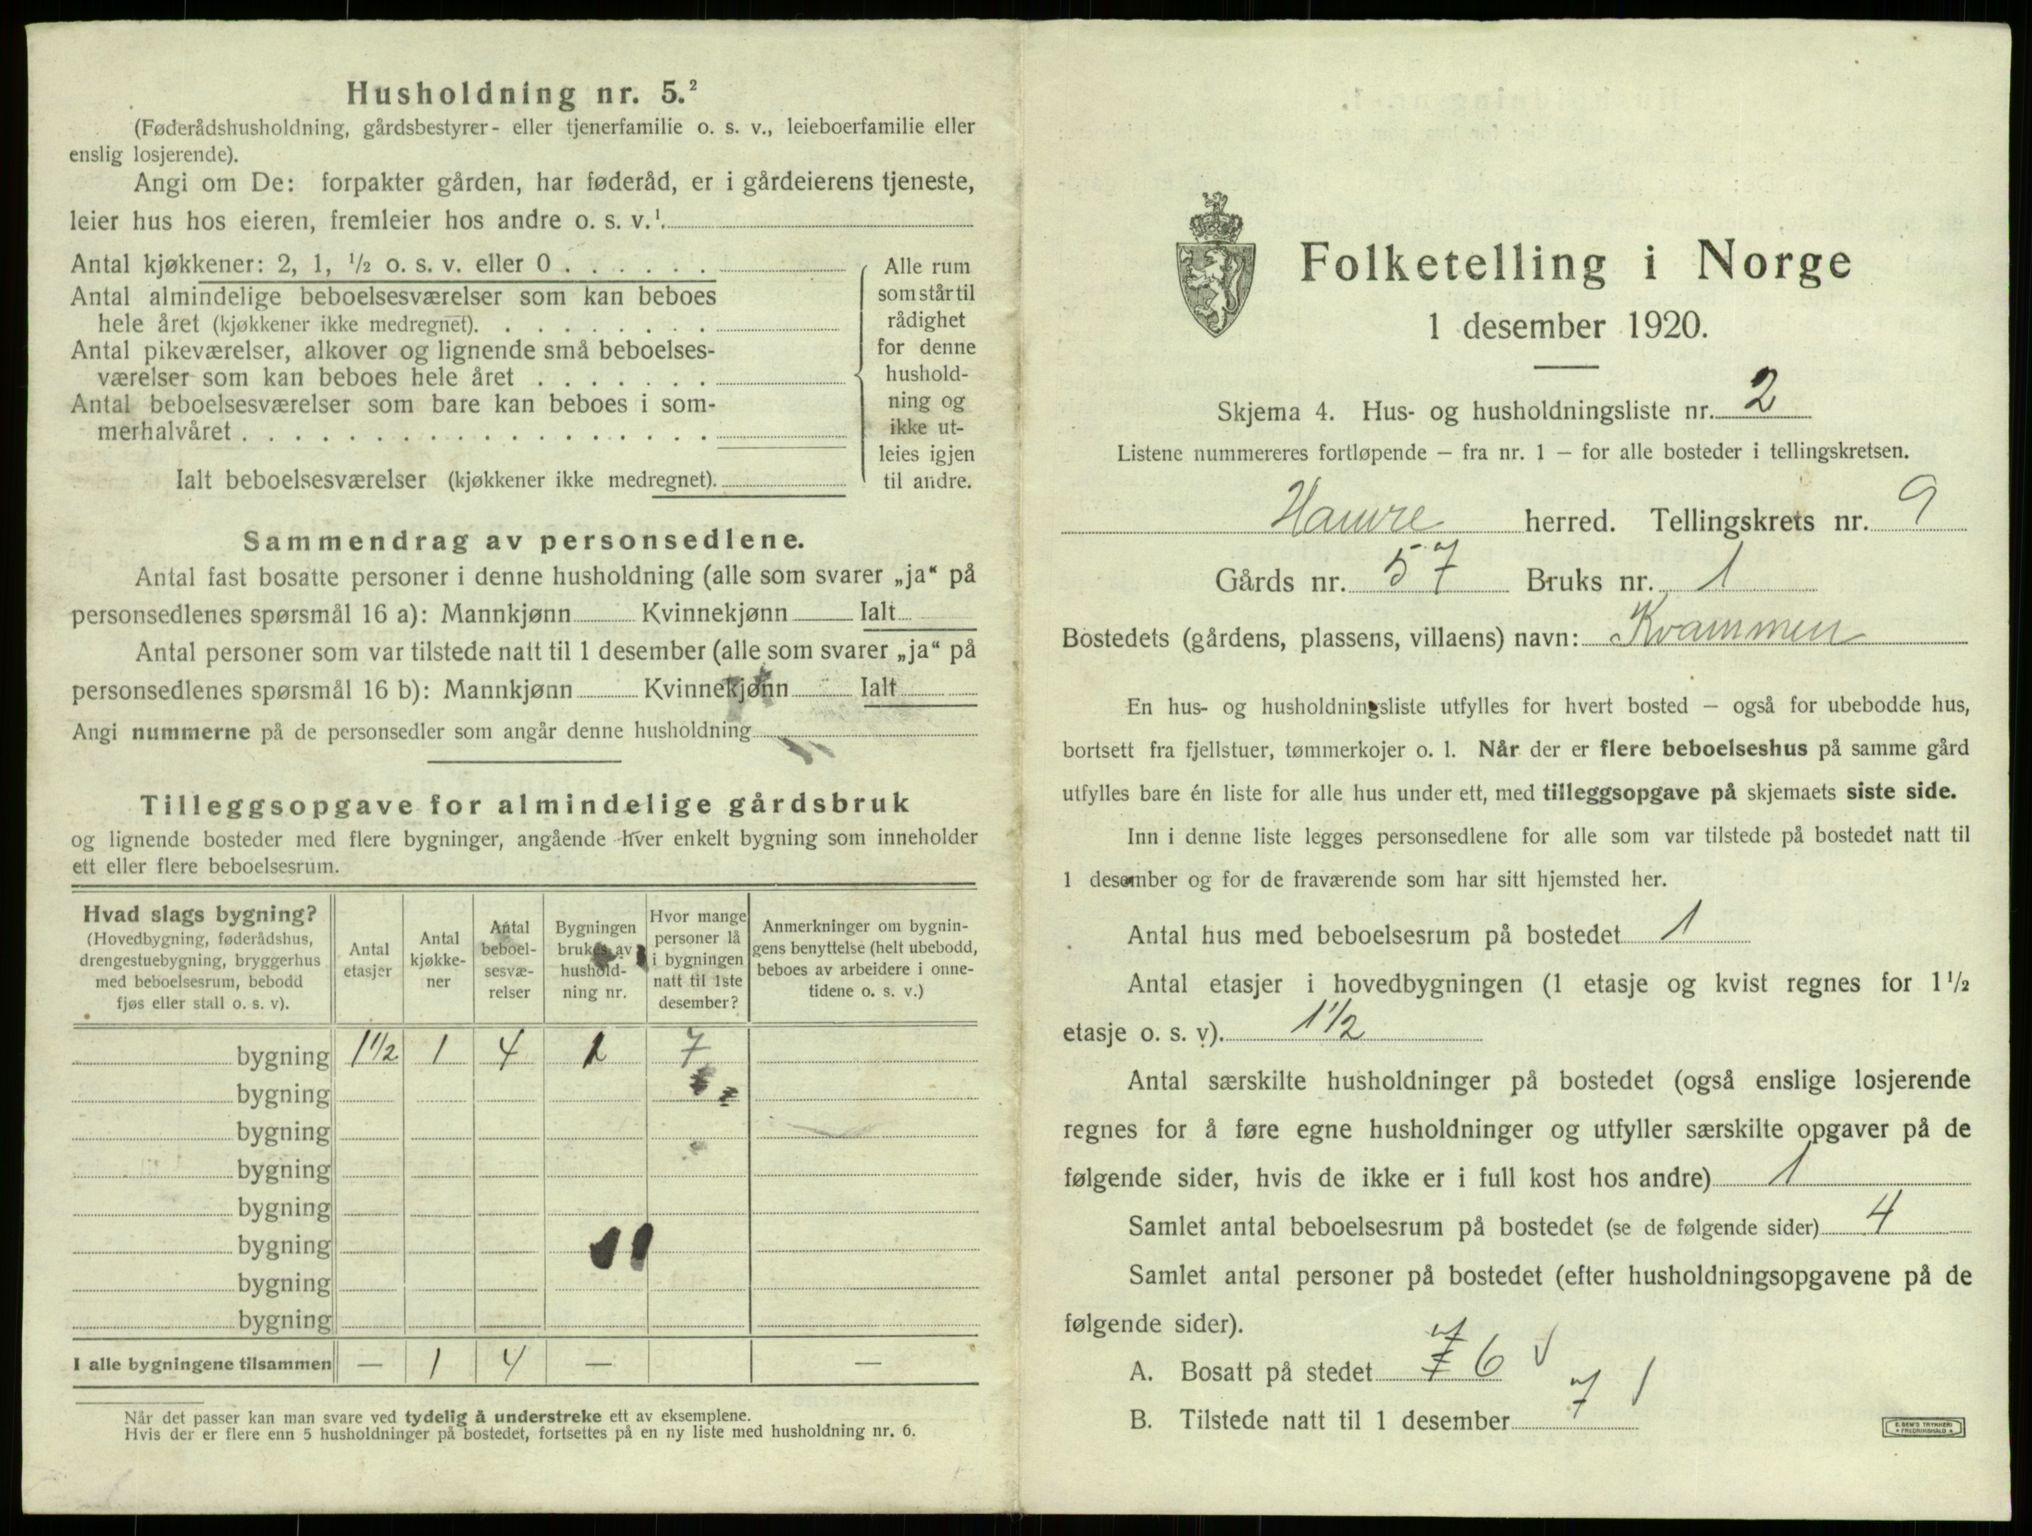 Husholdning nr. 5.²
(Føderådshusholdning, gårdsbestyrer- eller tjenerfamilie o. s. v., leieboerfamilie eller
enslig losjerende).
Angi om De: forpakter gården, har føderåd, er i gårdeierens tjeneste,
leier hus hos eieren, fremleier hos andre o. s. v.¹
Antal kjøkkener: 2, 1, ½ o. s. v. eller 0
Antal almindelige beboelsesværelser som kan beboes
hele året (kjøkkener ikke medregnet).
Antal pikeværelser, alkover og lignende små beboelses-
værelser som kan beboes hele året
Antal beboelsesværelser som bare kan beboes i som-
merhalvåret
Ialt beboelsesværelser (kjøkkener ikke medregnet).
Alle rum
som står til
rådighet
for denne
hushold-
ning og
ikke ut-
leies igjen
til andre.
Sammendrag av personsedlene.
Antal fast bosatte personer i denne husholdning (alle som svarer „ja“ på
personsedlenes spørsmål 16 a): Mannkjønn Kvinnekjønn Ialt
Antal personer som var tilstede natt til 1 desember (alle som svarer „ja“ på
personsedlenes spørsmål 16 b): Mannkjønn Kvinnekjønn Ialt
Angi nummerne på de personsedler som angår denne husholdning
Tilleggsopgave for almindelige gårdsbruk
og lignende bosteder med flere bygninger, angående hver enkelt bygning som inneholder
ett eller flere beboelsesrum.
Hvad slags bygning?
(Hovedbygning, føderådshus,
drengestuebygning, bryggerhus
med beboelsesrum, bebodd
fjøs eller stall o. s. v).
Antal
etasjer
Antal
kjøkke-
ner
Antal
beboel-
sesvæ-
relser
Bygningen
brukes av
hushold-
ning nr.
Hvor mange
personer lå
i bygningen
natt til 1ste
desember?
Anmerkninger om bygnin-
gens benyttelse (helt ubebodd,
beboes av arbeidere i onne-
tidene o. s. v.)
bygning 1½ 1 4 1 7
bygning
bygning
bygning
bygning
bygning
bygning
bygning
I alle bygningene tilsammen — 1 4 — —
Når det passer kan man svare ved tydelig å understreke ett av eksemplene.
Hvis der er flere enn 5 husholdninger på bostedet, fortsettes på en ny liste med husholdning nr. 6.
Folketelling i Norge
1 desember 1920.
Skjema 4. Hus- og husholdningsliste nr. 2
Listene nummereres fortløpende – fra nr. 1 – for alle bosteder i tellingskretsen.
Hamre herred. Tellingskrets nr. 9
Gårds nr. 57 Bruks nr. 1
Bostedets (gårdens, plassens, villaens) navn: Kvammen
En hus- og husholdningsliste utfylles for hvert bosted – også for ubebodde hus,
bortsett fra fjellstuer, tømmerkojer o. l. Når der er flere beboelseshus på samme gård
utfylles bare én liste for alle hus under ett, med tilleggsopgave på skjemaets siste side.
Inn i denne liste legges personsedlene for alle som var tilstede på bostedet natt til
1 desember og for de fraværende som har sitt hjemsted her.
Antal hus med beboelsesrum på bostedet 1
Antal etasjer i hovedbygningen (1 etasje og kvist regnes for 1½
etasje o. s. v). 1½
Antal særskilte husholdninger på bostedet (også enslige losjerende
regnes for å føre egne husholdninger og utfyller særskilte opgaver på de
følgende sider, hvis de ikke er i full kost hos andre) 1
Samlet antal beboelsesrum på bostedet (se de følgende sider) 4
Samlet antal personer på bostedet (efter husholdningsopgavene på de
følgende sider).
A. Bosatt på stedet 7 6 √
B. Tilstede natt til 1 desember 7 /
E. SEM'S TRYKKERI
FREDRIKSHALD